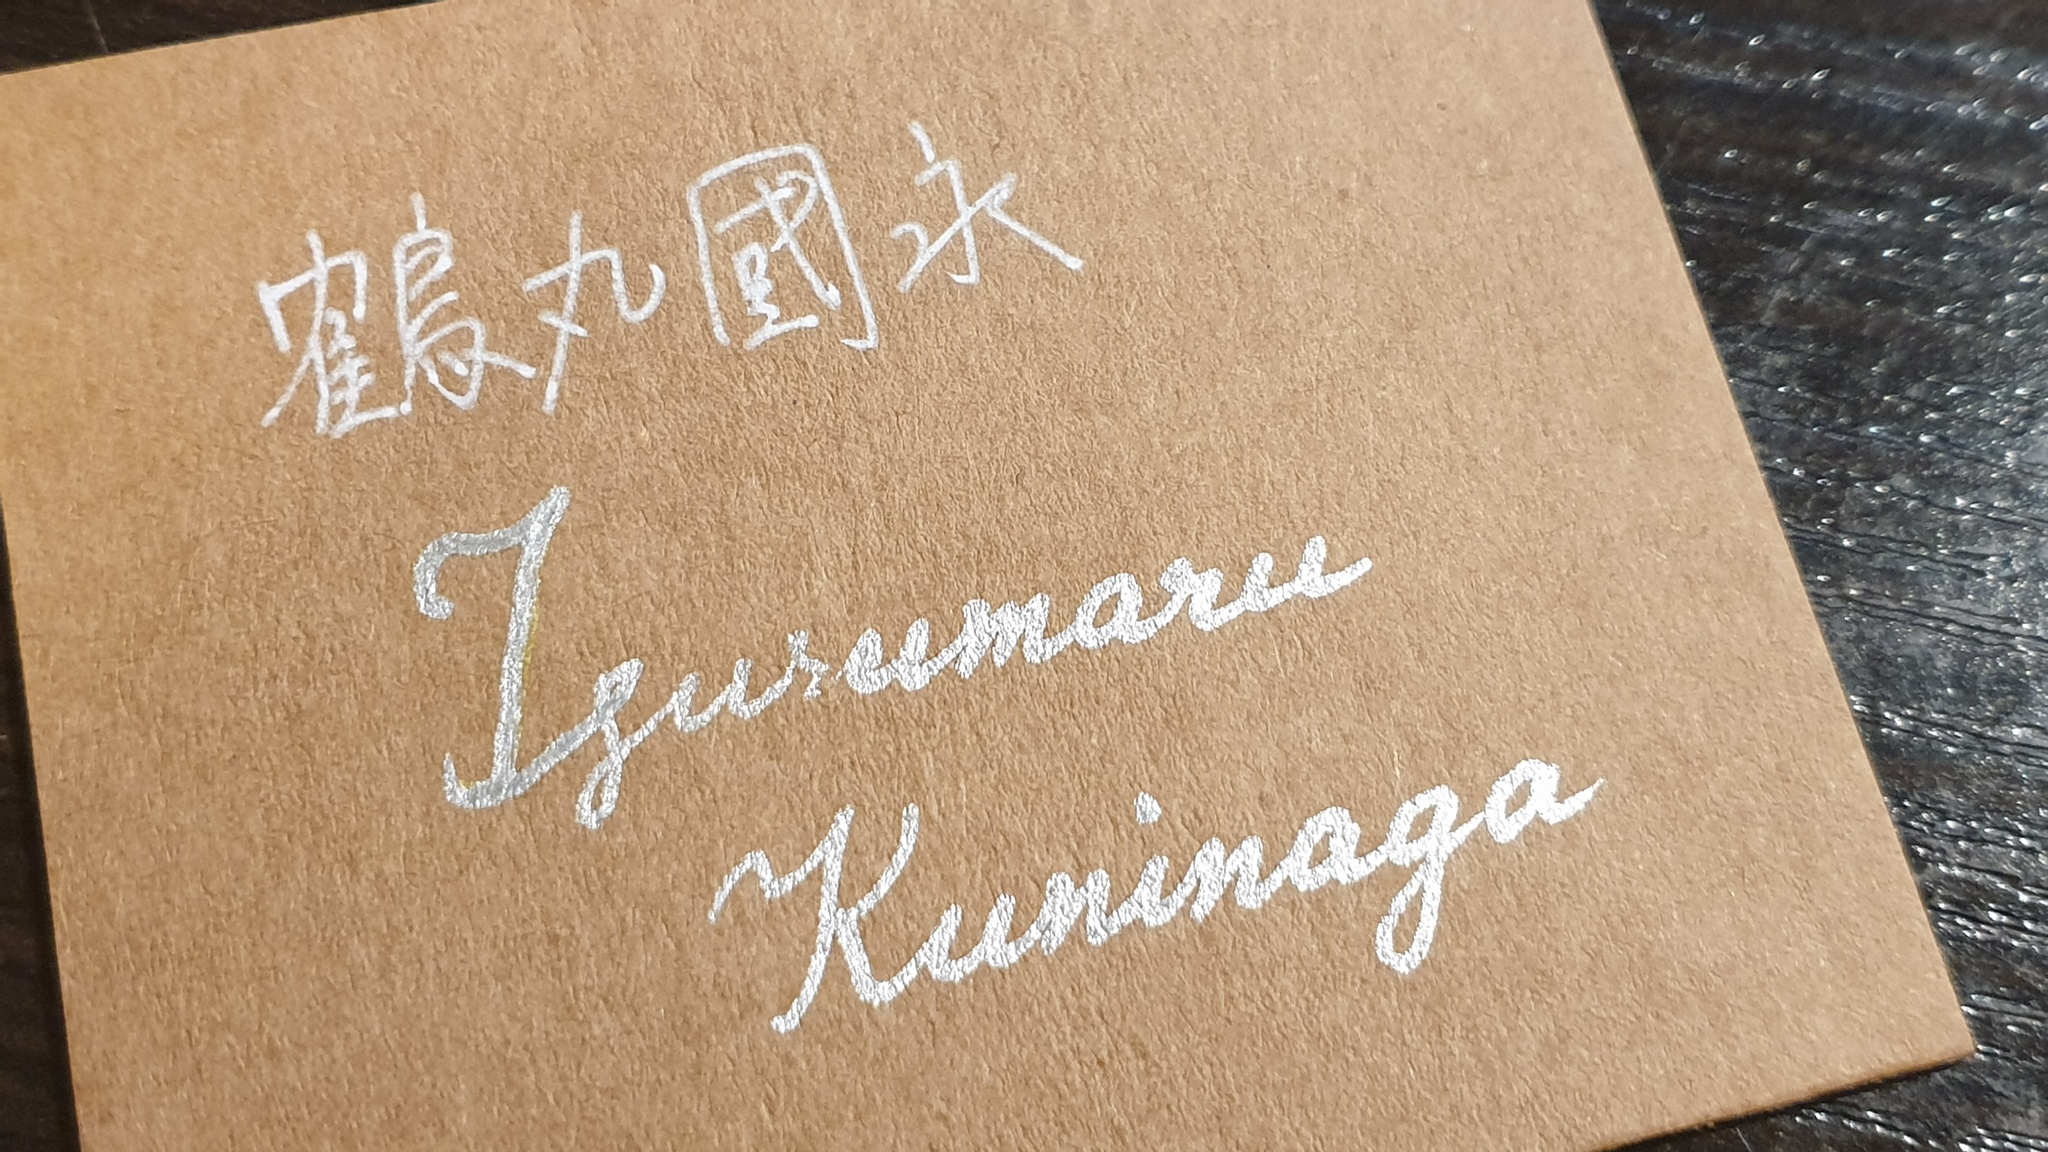 鶴丸國永
Tsurumaru
Kuninaga